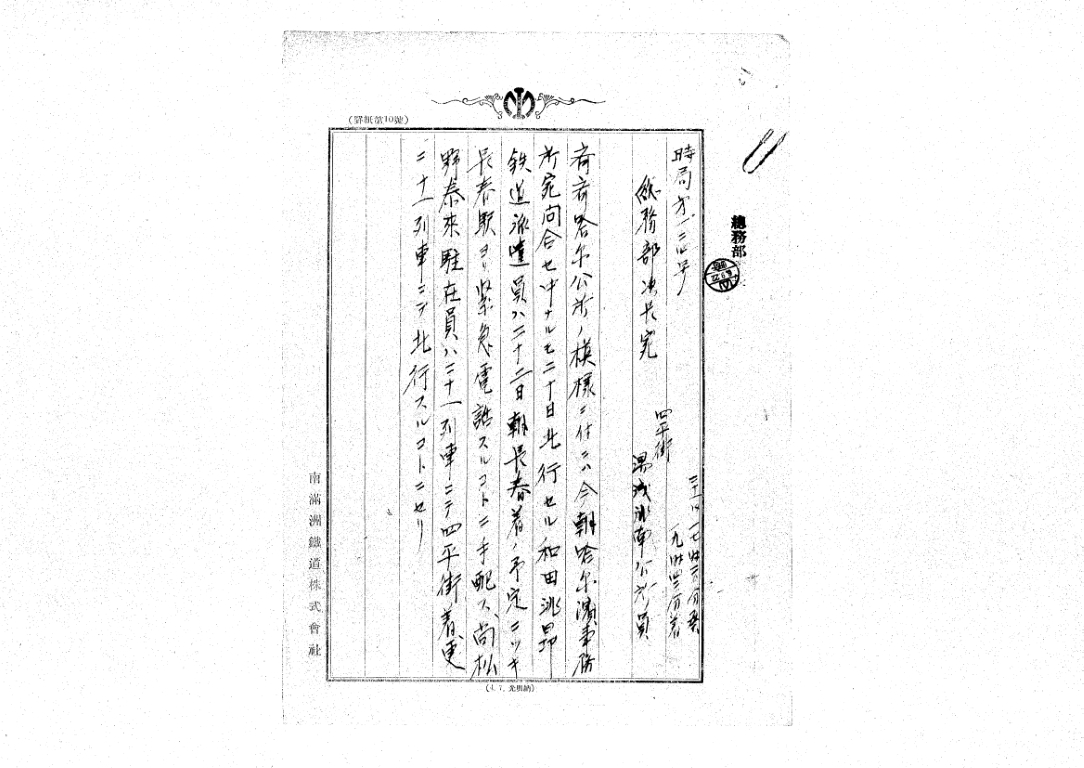 總務部
時局第二四号
二十一日 一七時三分発
一九時四三分着
総務部次長宛
四平街
湯浅洮南公所員
斉斉哈尔公所ノ模様ニ付テハ今朝哈尔濱事務
所宛問合セ中ナルモ二十日北行セル和田洮昂
鉄道派遣員ハ二十二日朝長春着ノ予定ニツキ
長春駅ヨリ緊急電話スルコトニ手配ス、尚松
野泰來駐在員ハ二十一列車ニテ四平街着、更
ニ十一列車ニテ北行スルコトニセリ
南滿洲鐵道株式會社